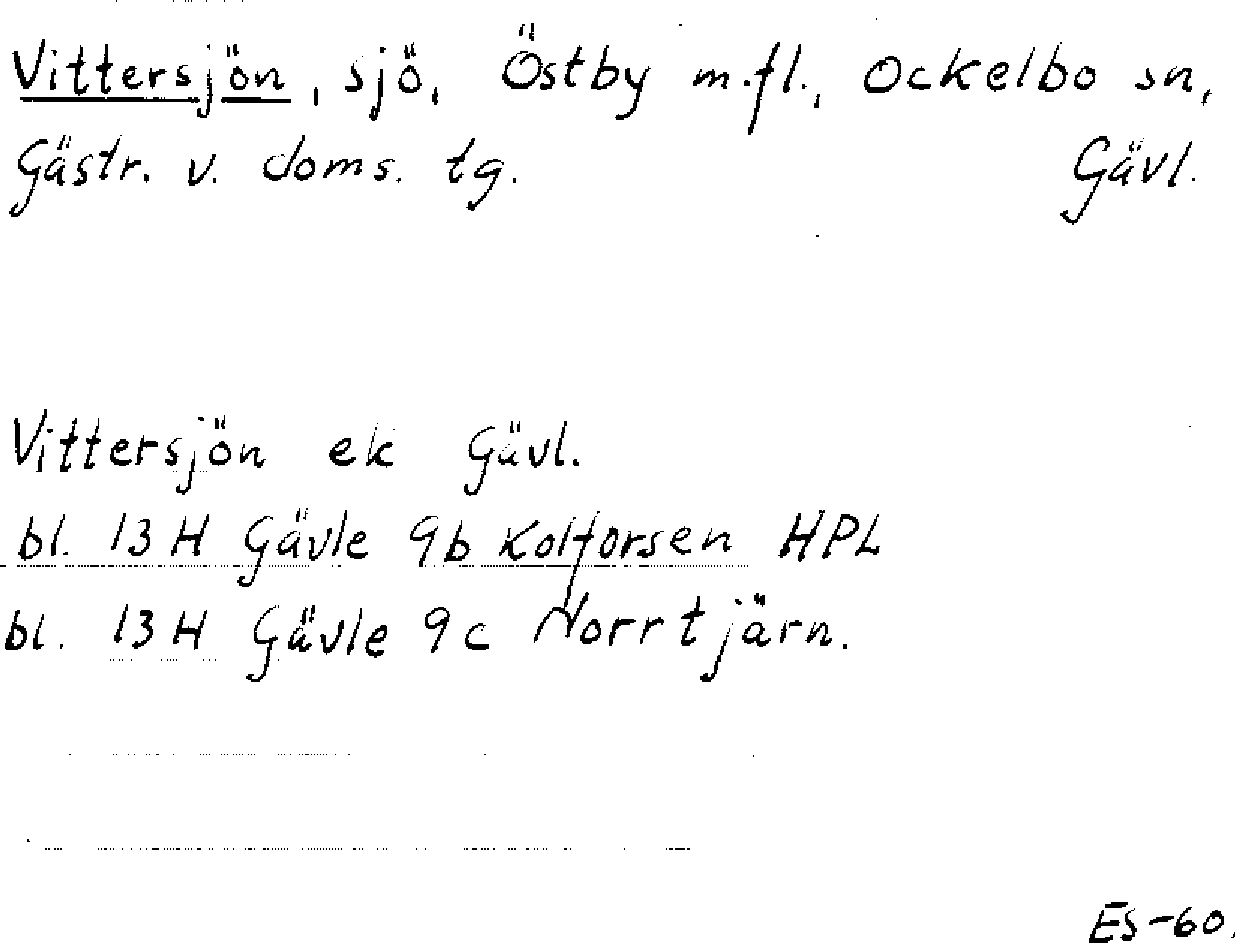 Vittersjön, sjö, Östby m.fl., Ockelbo sn,
Gästr. v. doms. tg. Gävl.
Vittersjön ek Gävl.
bl. 13 H Gävle 9b Kolforsen HPL
bl. 13 H Gävle 9c Norrtjärn.
ES-60.